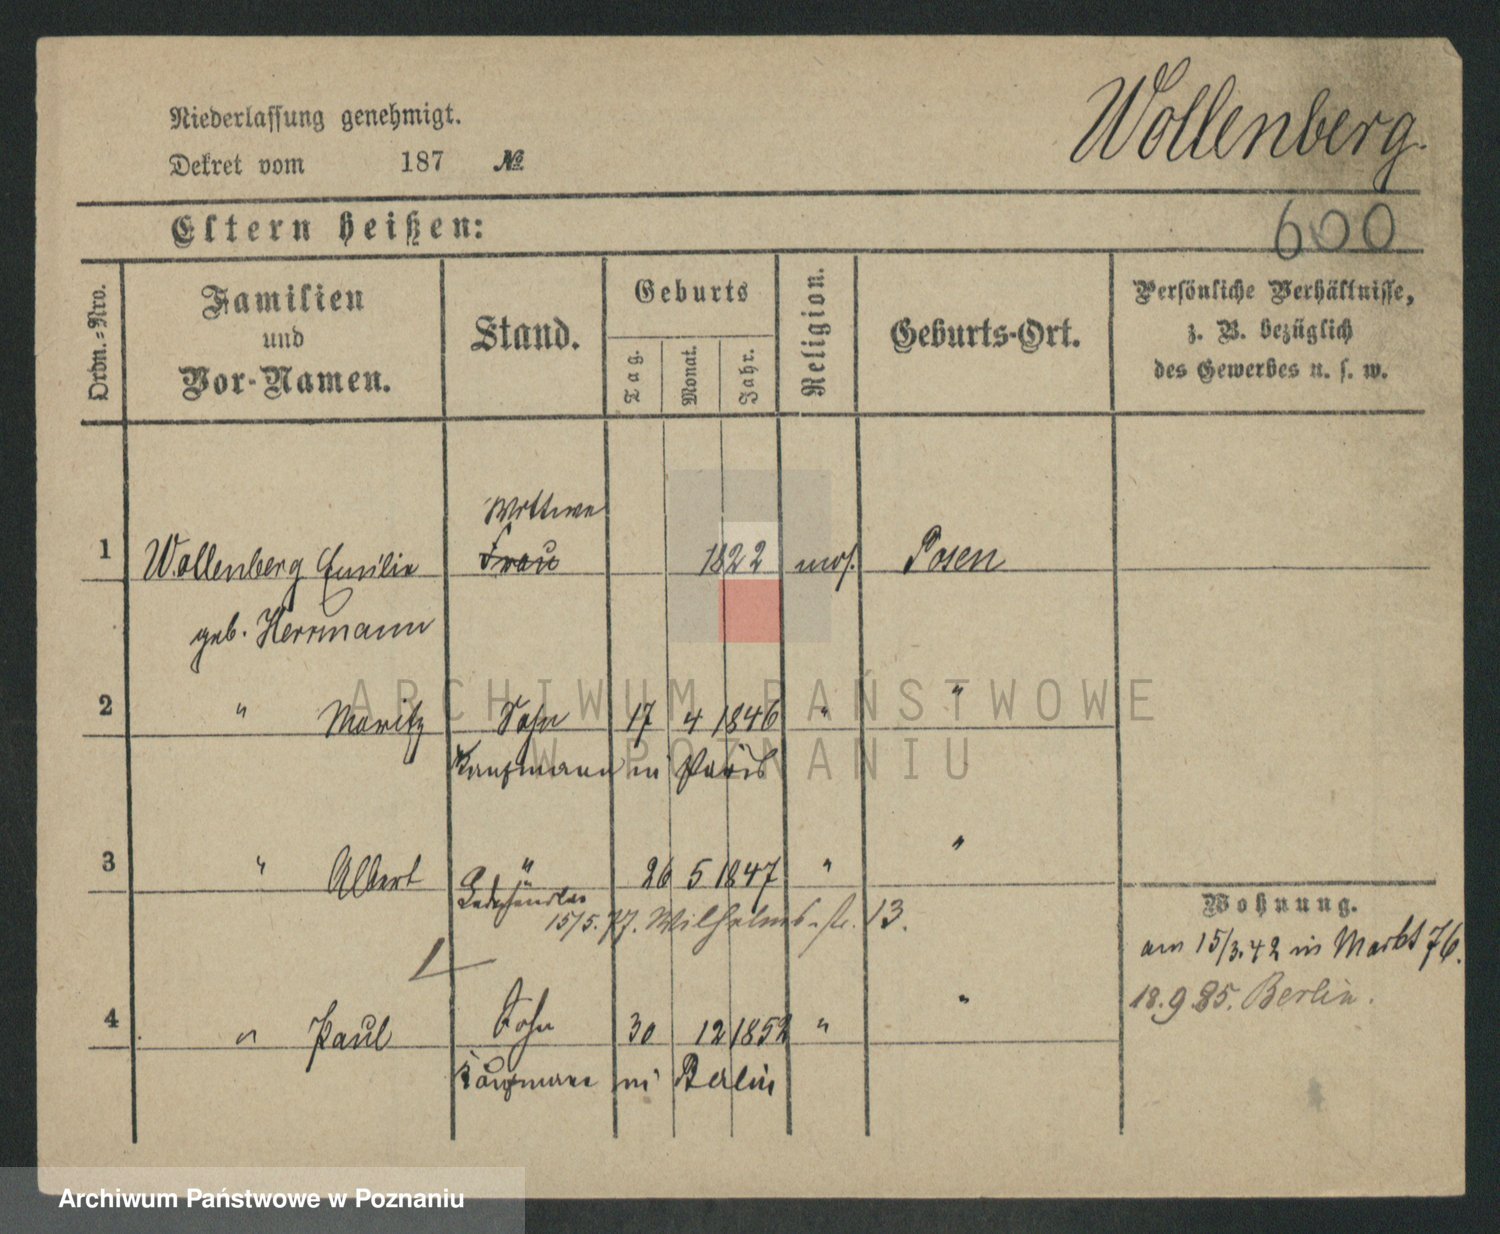 Niederlassung genehmigt.
Dekret vom 187 №
Wollenberg.
Eltern heißen:
600
Ordn.-Nro.
Familien
und
Vor-Namen.
Stand.
Geburts
Tag.
Monat.
Jahr.
Religion.
Geburts-Ort.
Persönliche Verhältnisse,
z. B. bezüglich
des Gewerbes u. s. w.
Wittwe
1 Wollenberg Emilie Frau 1822 mos. Posen
geb. Herrmann
2 " Moritz Sohn 17 4 1846 " "
Kaufmann in Paris
3 " Albert " 26 5 1847 " "
15/5. 77. Wilhelmsstr. 13.
Wohnung.
am 15/3. 42 in Markt 76.
18. 9 85. Berlin.
4 " Paul Sohn 30 12 1852 " "
Kaufmann in Berlin
ARCHIWUM PAŃSTWOWE
W POZNANIU
Archiwum Państwowe w Poznaniu